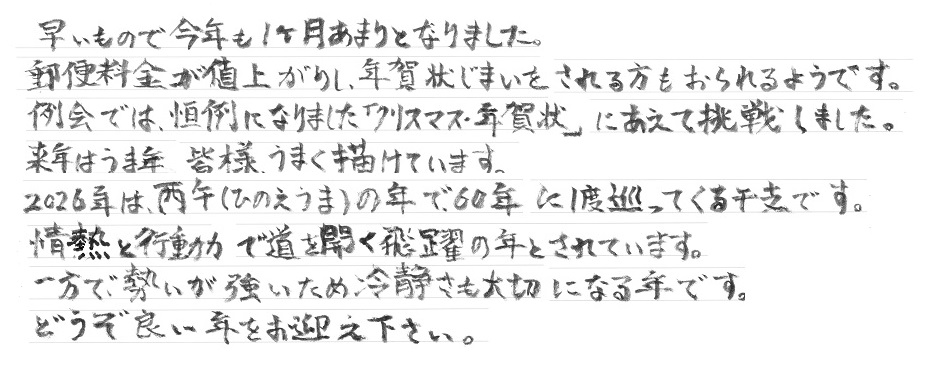 早いもので今年も1ヶ月あまりとなりました。
郵便料金が値上がりし、年賀状じまいをされる方もおられるようです。
例会では、恒例になりました「クリスマス・年賀状」にあえて挑戦しました。
来年はうま年 皆様、うまく描けています。
2026年は、丙午(ひのえうま)の年で、60年に1度巡ってくる干支です。
情熱と行動力で道を開く飛躍の年とされています。
一方で、勢いが強いため冷静さも大切になる年です。
どうぞ良い年をお迎え下さい。